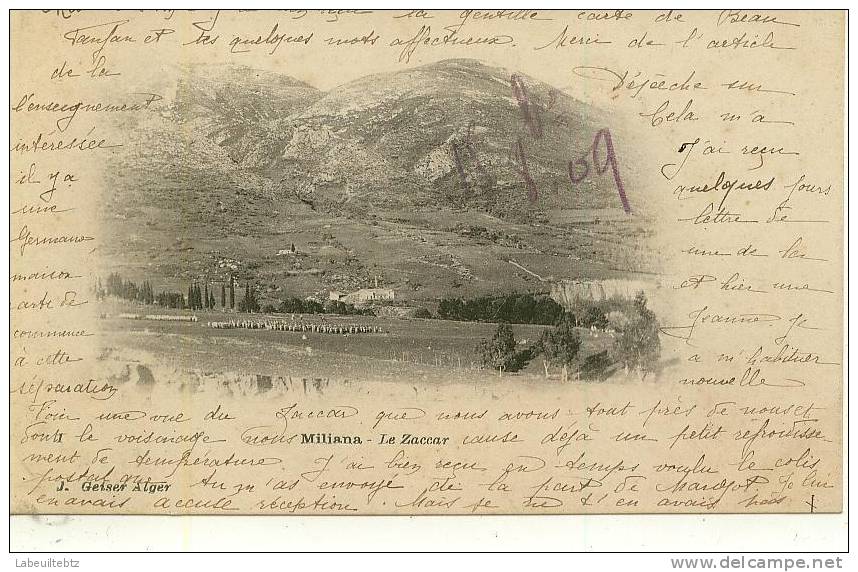 la gentille carte de Beau
Fanfan et tes quelques mots affectueux. Merci de l'article
de la
l'enseignement
intéressée
il y a
une
Germaine
maison
carte de
commence
à cette
séparation
Dépêche sur
Cela m'a
J'ai reçu
quelques jours
lettre de
une de les
et hier une
Jeanne. Je
a m'habituer
nouvelle
18.8.09
Voici une vue du Zaccar que nous avons tout près de nous et
dont le voisinage nous cause déjà un petit refroidisse-
ment de température. J'ai bien reçu en temps voulu le colis
postal que tu m'as envoyé de la part de Margot. Je lui
en avais accusé réception. Mais je ne t'en avais pas
Miliana - Le Zaccar
J. Geiser Alger
Labeuitebtz
www.delcampe.net